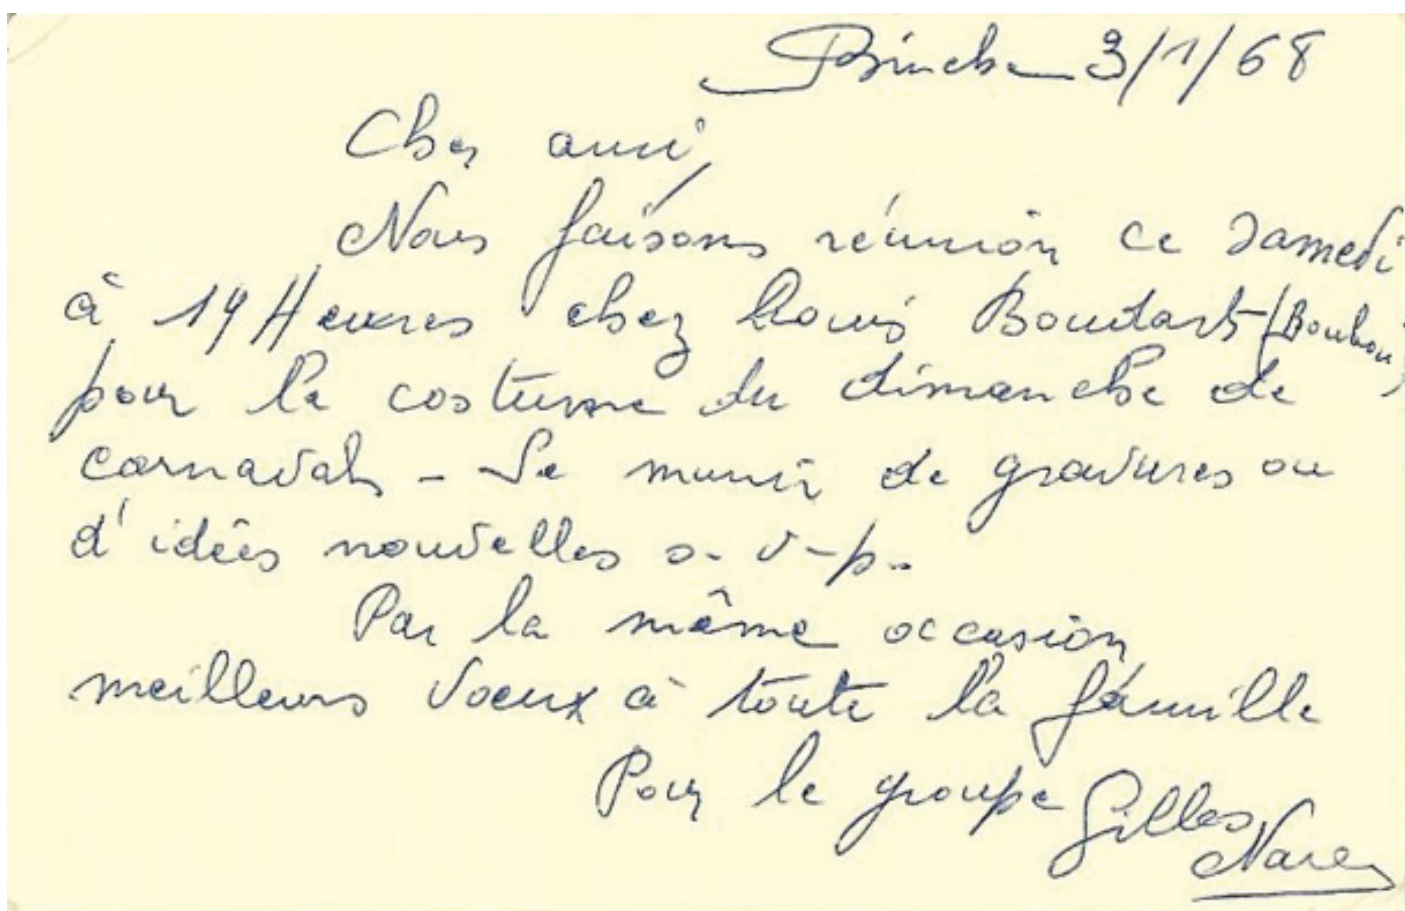 Binche 3/1/68
Cher ami,
Nous faisons réunion ce samedi
à 19 Heures chez Louis Boudart (Boubou)
pour le costume du dimanche de
carnaval - Se munir de gravures ou
d'idées nouvelles s-v-p-
Par la même occasion
meilleurs voeux à toute la famille
Pour le groupe Gilles